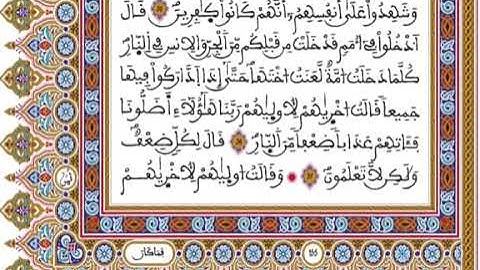 وَشَهِدُواْ عَلَىٰٓ أَنفُسِهِمُۥٓ أَنَّهُمْ كَانُواْ كَٰفِرِينَ قَالَ
اَدْخُلُواْ فِےٓ أُمَمٍ قَدْ خَلَتْ مِن قَبْلِكُم مِّنَ اَلْجِنِّ وَالِانسِ فِے اِلنّ۪ارِ
كُلَّمَا دَخَلَتُ امَّةٌ لَّعَنَتُ اخْتَهَا حَتَّىٰٓ إِذَا اَدَّارَكُواْ فِيهَا
جَمِيعاً قَالَتُ اخْر۪يٰهُمْ لِأُول۪يٰهُمْ رَبَّنَا هَٰٓؤُلَآءِ اَ۬ضَلُّونَا
فَـَٔاتِهِمْ عَذَاباً ضِعْفاً مِّنَ اَلنّ۪ارِ قَالَ لِكُلٍّ ضِعْفٌ
وَلَٰكِن لَّا تَعْلَمُونَ وَقَالَتُ ا۟ول۪يٰهُمْ لِأُخْر۪يٰهُمْ
فما كان